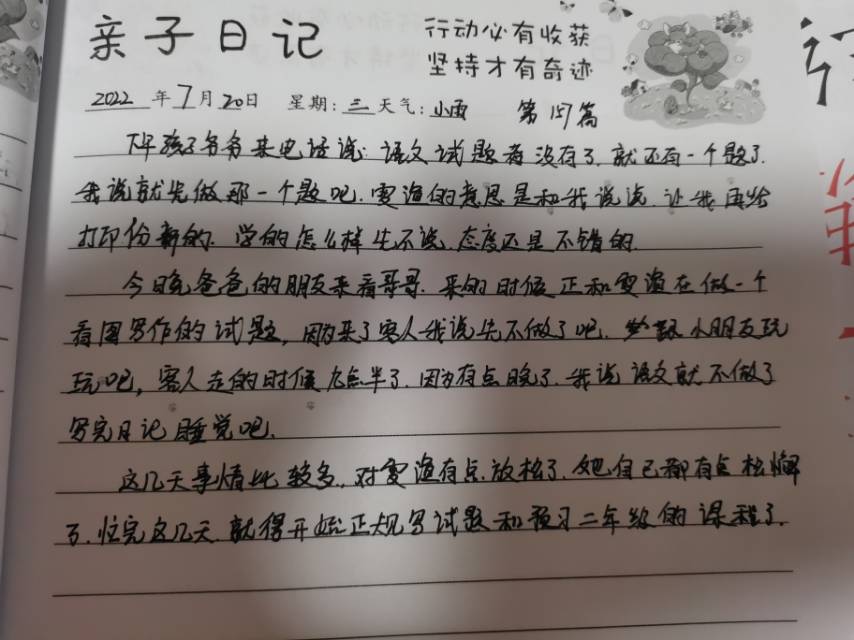 亲子日记
行动必有收获
坚持才有奇迹
2022年7月20日 星期:三 天气:小雨 第 篇
下午孩子爷爷来电话说.语文试题卷没有了.就还有一个题了.
我说就先做那一个题吧.雯渲的意思是和我说说.让我再给
打印份新的.学的怎么样先不说.态度还是不错的.
今日晚爸爸的朋友来看哥哥.来的时候正和雯渲在做一个
看图写作的试题,因为来了客人我说先不做了吧. 跟小朋友玩
玩吧,客人走的时候九点半了.因为有点晚了.我说语文就不做了
写完日记睡觉吧.
这几天事情比较多.对雯渲有点放松了.她自己都有点松懈
了.忙完这几天.就得开始正规写试题和预习二年级的课程了.